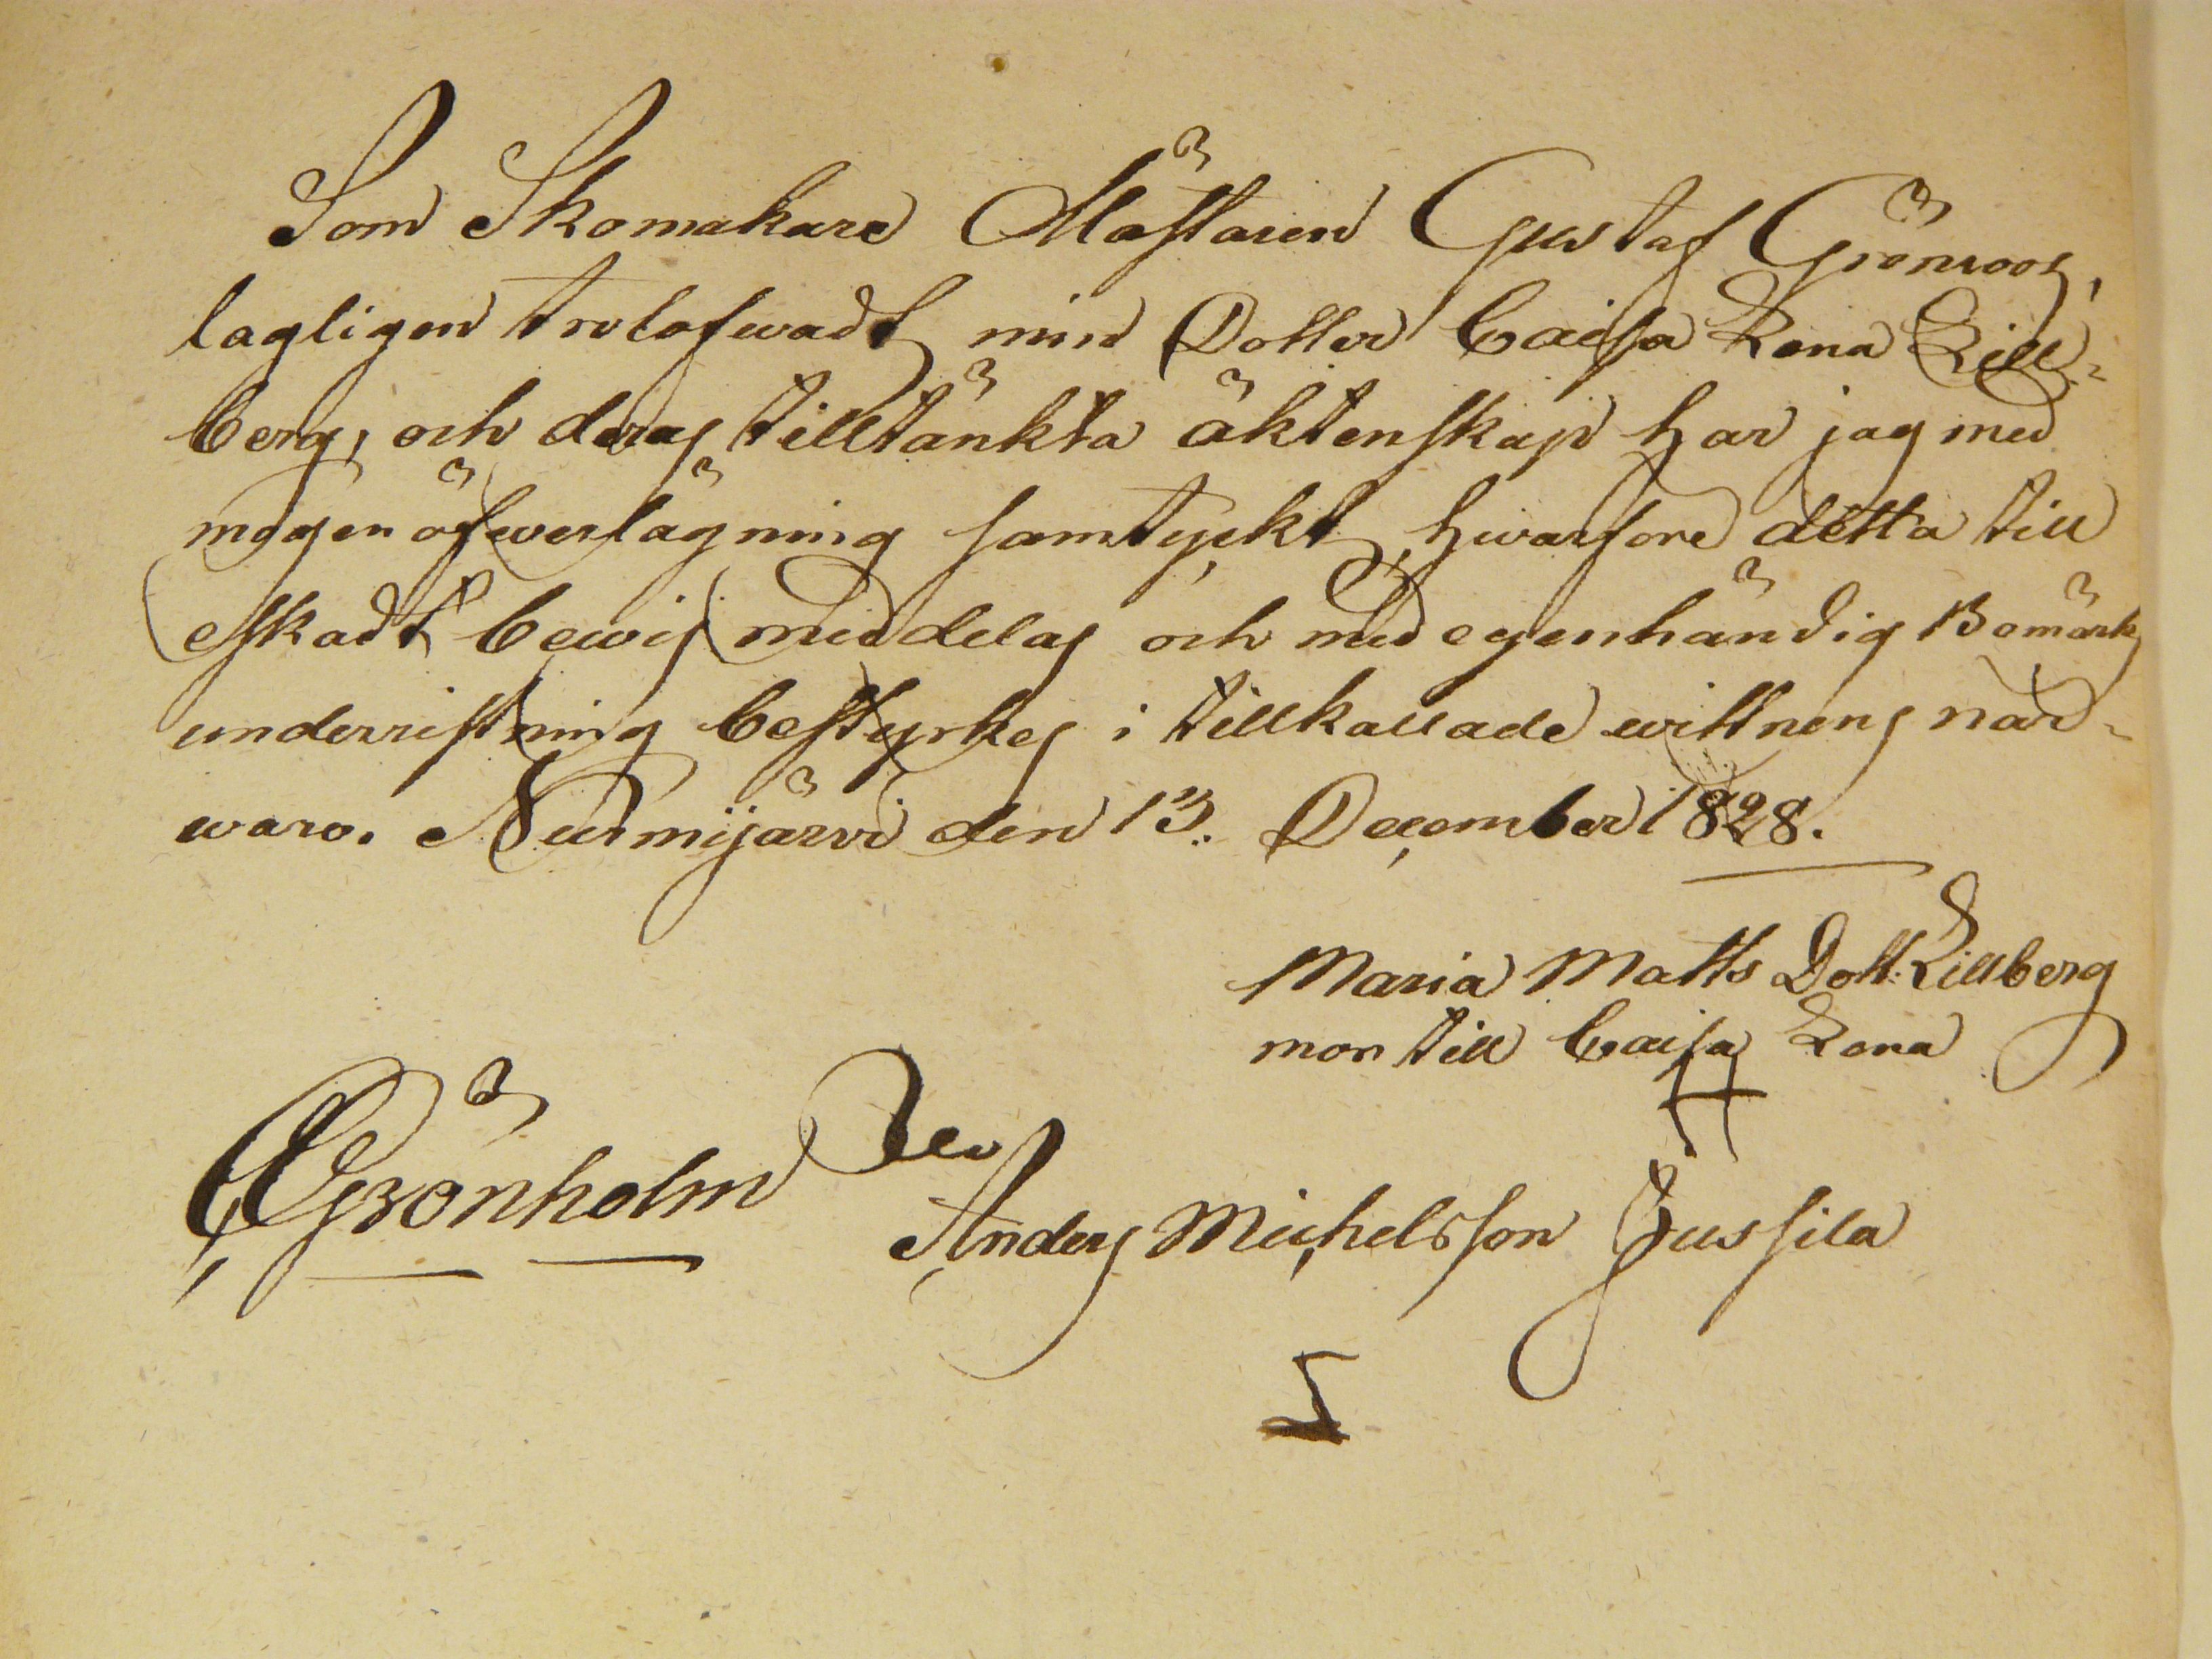 Som Skomakare Mästaren Gustaf Grönroos,
lagligen trolofwadt min Dotter Caisa Lena Lill-
berg, och deras tilltänkta äktenskap har jag med
mogen öfwerlägning samtyckt, hwarföre detta till
eskadt bewis meddelas och med egenhändig Bomärks
underristning bestyrkes i tillkallade wittnens när-
waro. Nurmijärvi den 13. December 1828.
Maria Matts Dott: Lillberg
mor till Caisa Lena
Grönholm
Anders Michelsson Jussila